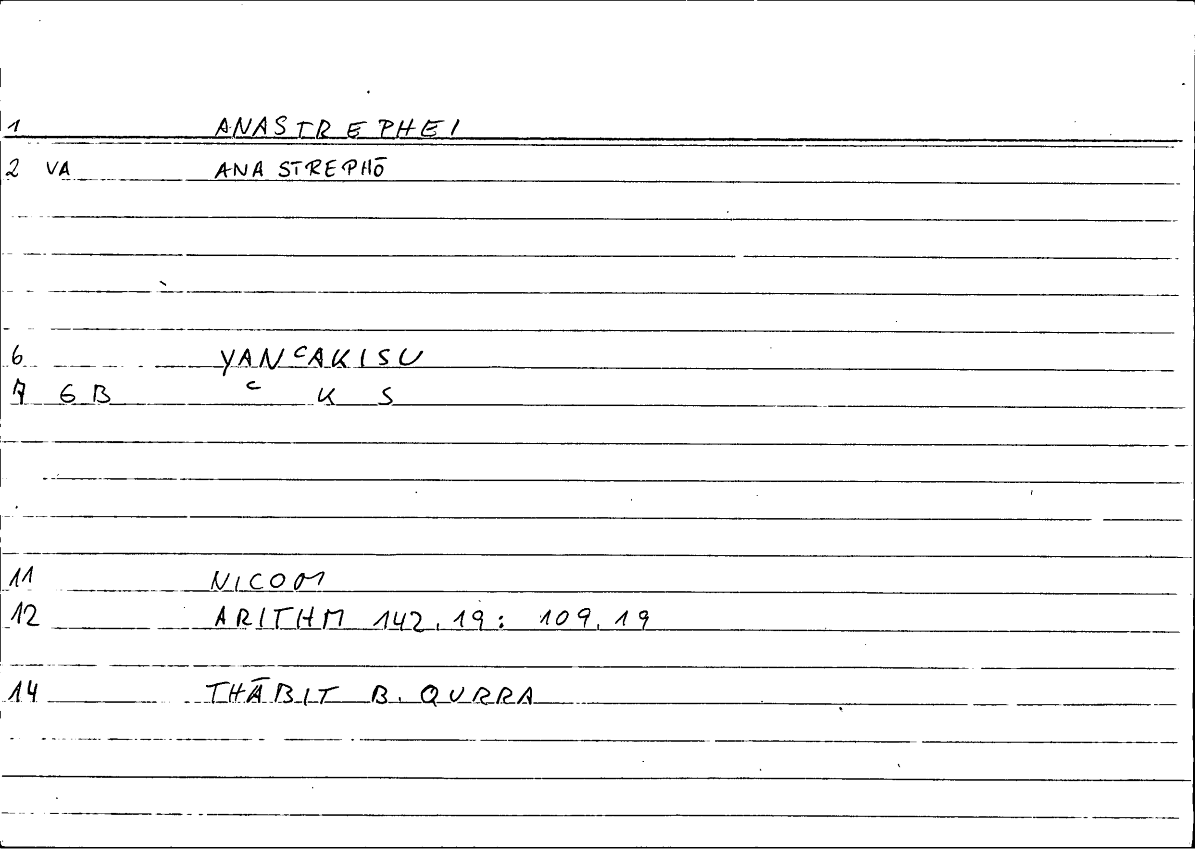 1 ANASTREPHEI
2 VA ANASTREPHŌ
6 YANᶜAKISU
7 6 B ᶜ K S
11 NICOM
12 ARITHM 142.19: 109.19
14 THĀBIT B. QURRA